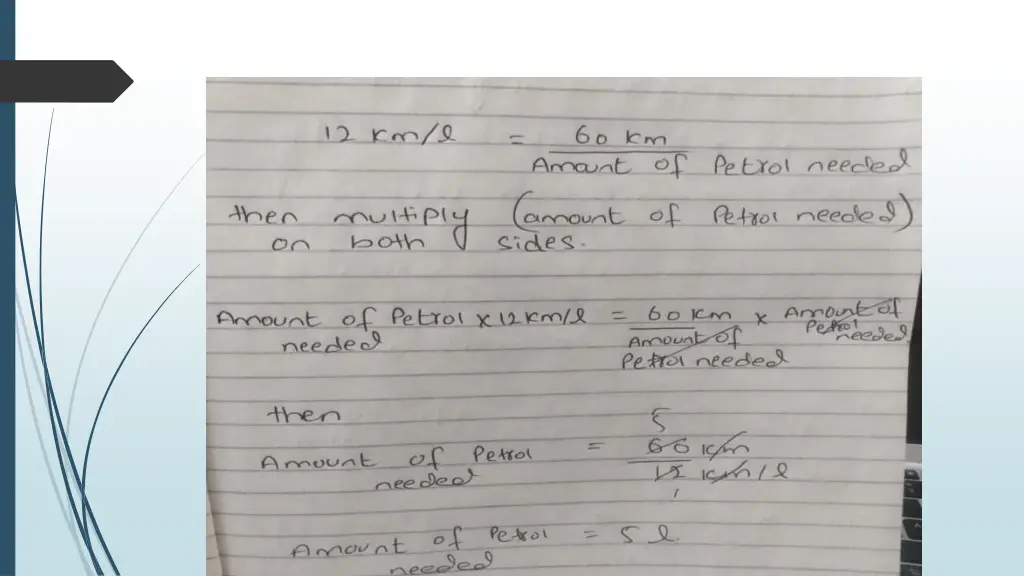 12 km/l = 60 km
Amount of Petrol needed
then multiply (amount of Petrol needed)
on both sides.
Amount of Petrol x 12 km/l = 60 km x Amount of
needed Amount of Petrol needed
Petrol needed
then 5
Amount of Petrol = 60 km
needed 12 km/l
1
Amount of Petrol = 5 l
needed